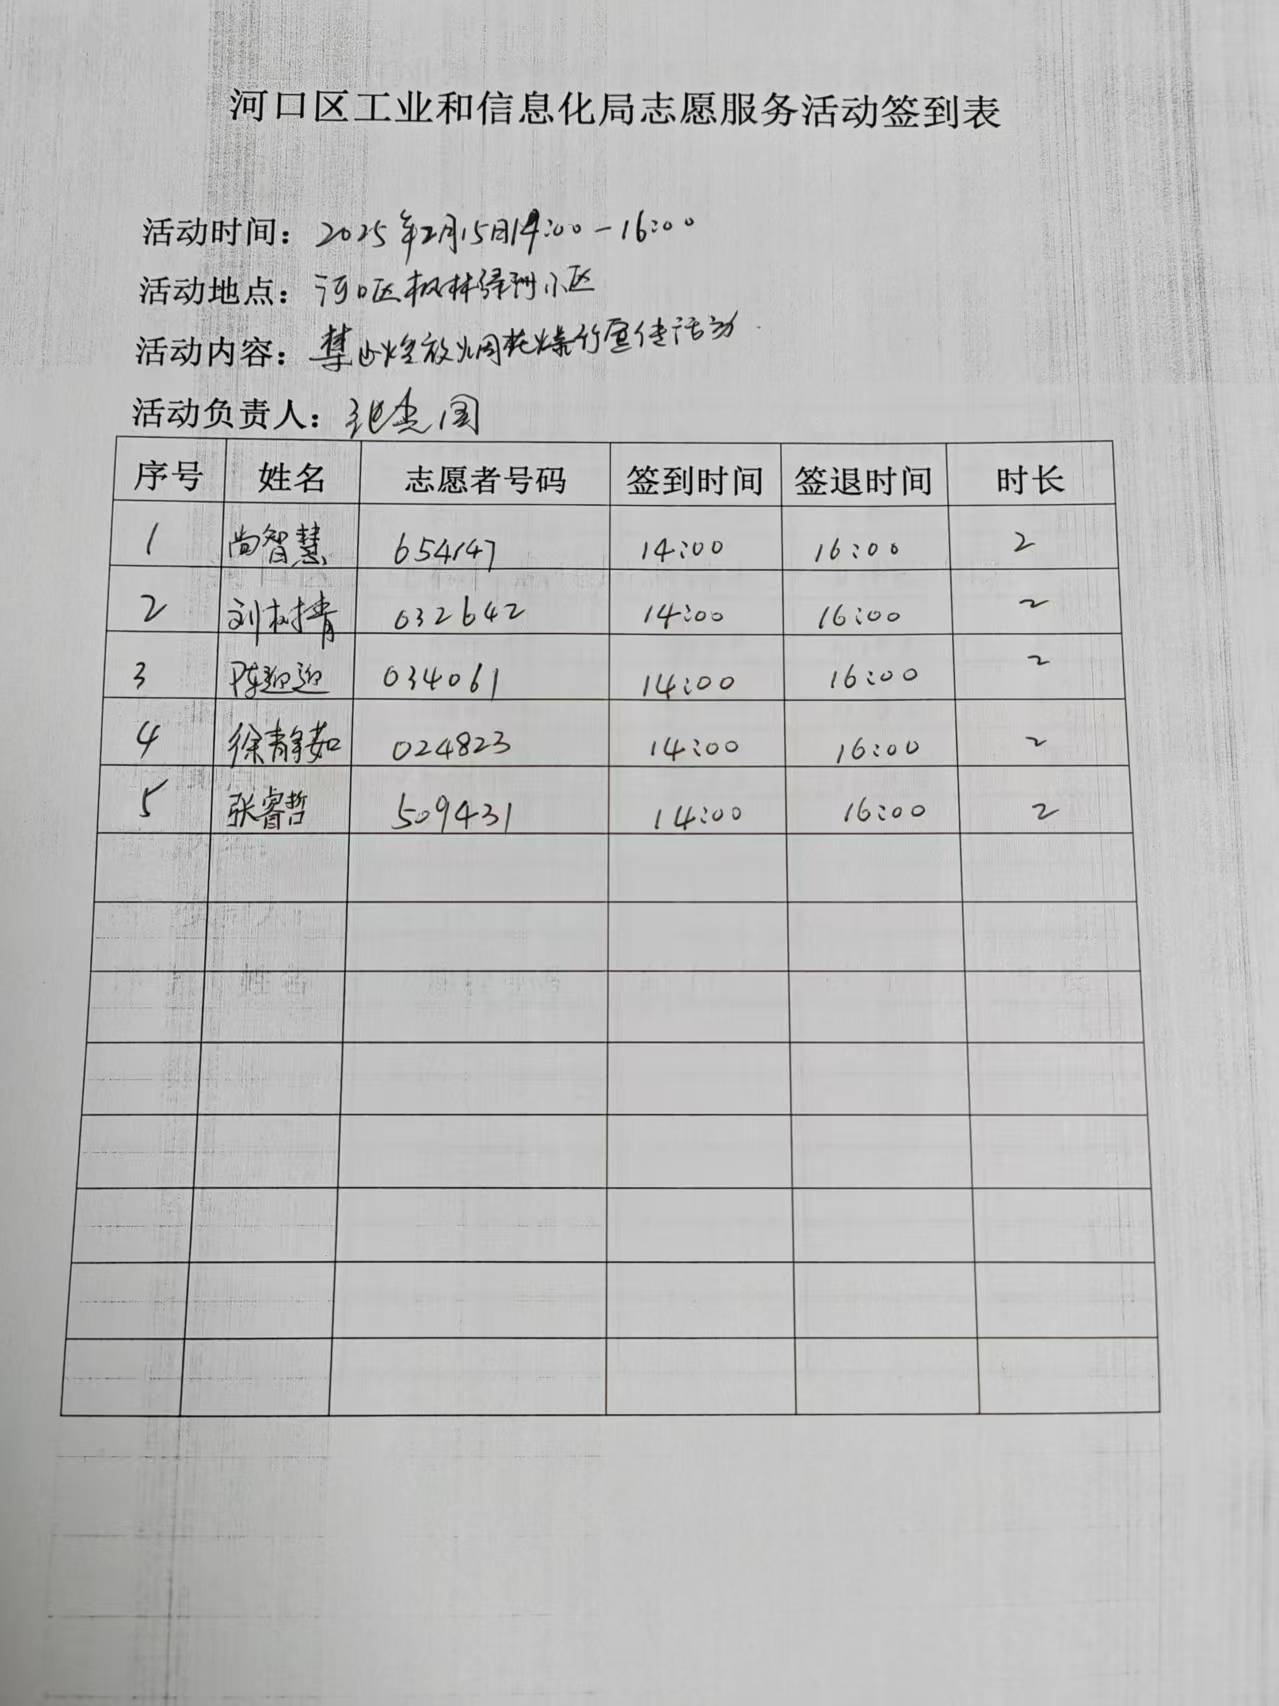 河口区工业和信息化局志愿服务活动签到表
活动时间：2025年2月15日14:00-16:00
活动地点：河口区枫林绿洲小区
活动内容：禁止燃放烟花爆竹宣传活动
活动负责人：
序号 姓名 志愿者号码 签到时间 签退时间 时长
1 尚智慧 654147 14:00 16:00 2
2 刘树青 032642 14:00 16:00 2
3 陈迎迎 034061 14:00 16:00 2
4 徐静茹 024823 14:00 16:00 2
5 张睿哲 509431 14:00 16:00 2